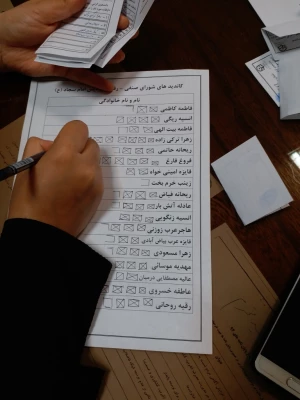 کاندید های شورای صنفی - رفاهی
نام و نام خانوادگی
فاطمه کاظمی
آسیه ریگی
فاطمه بیت الهی
زهرا ترکی زاده
ریحانه حاتمی
فروغ فارغ
فایزه امینی خواه
زینب خرم بخت
ریحانه فیاض
عادله آتش بار
آنسیه زنگویی
هاجر عرب زوزنی
فایزه عرب بیاض آبادی
زهرا مسعودی
مهدیه موسائی
عالیه مصطفایی درمیان
عاطفه خسروی
رقیه روحانی